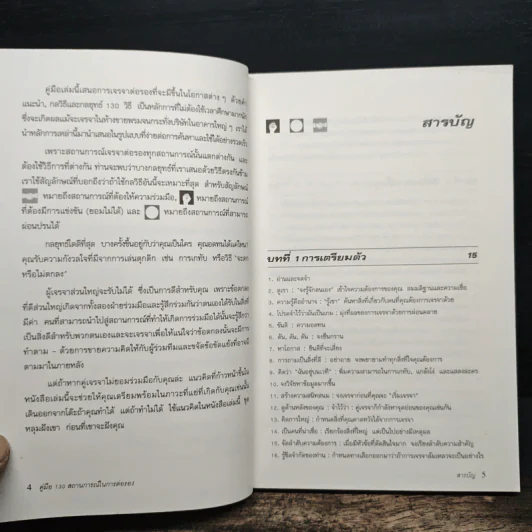 คู่มือเล่มนี้เสนอการเจรจาต่อรองที่จะมีขึ้นในโอกาสต่าง ๆ ด้วยคำ
แนะนำ, กลวิธีและกลยุทธ์ 130 วิธี เป็นหลักการที่ไม่ต้องใช้เวลาศึกษามากนัก
ซึ่งจะเกิดผลแม้จะเจรจาในห้างขายพรมจนกระทั่งบริษัทในอาคารใหญ่ ๆ เราได้
นำหลักการเหล่านี้มานำเสนอในรูปแบบที่ง่ายต่อการค้นหาและใช้ได้อย่างรวดเร็ว
เพราะสถานการณ์เจรจาต่อรองทุกสถานการณ์นั้นแตกต่างกัน และ
ต้องใช้วิธีการที่ต่างกัน ท่านจะพบว่าบางกลยุทธ์ที่เราเสนอด้วยวิธีตรงกันข้าม
เราใช้สัญลักษณ์ที่บอกถึงว่าถ้าใช้กลวิธีอันนี้จะเหมาะที่สุด สำหรับสัญลักษณ์
หมายถึงสถานการณ์ที่ต้องให้ความร่วมมือ, หมายถึงสถานการณ์
ที่ต้องมีการแข่งขัน (ยอมไม่ได้) และ หมายถึงสถานการณ์ที่สามารถ
ผ่อนปรนได้
กลยุทธ์ใดดีที่สุด บางครั้งขึ้นอยู่กับว่าคุณเป็นใคร คุณอดทนได้แค่ไหน
คุณรับความกังวลใจที่มีจากการเล่นตุกติก เช่น การเกทับ หรือวิธี "จะตกลง
หรือไม่ตกลง"
ผู้เจรจาส่วนใหญ่จะรับไม่ได้ ซึ่งเป็นการดีสำหรับคุณ เพราะข้อตกลง
ที่ดีส่วนใหญ่เกิดจากทั้งสองฝ่ายร่วมมือและรู้สึกร่วมกันว่าตนเองได้รับในสิ่งที่
มีค่า คนที่สามารถนำไปสู่สถานการณ์ที่ทำให้เกิดการร่วมมือได้นั้นจะรู้ถึง
เป็นสิ่งดีสำหรับพวกตนเองและจะเจรจาเพื่อให้แน่ใจว่าข้อตกลงนั้นจะมีการ
ทำตาม - ด้วยการขายความคิดให้กับผู้ร่วมทีมและขจัดข้อขัดแย้งที่อาจมี
ตามมาในภายหลัง
แต่ถ้าหากคู่เจรจาไม่ยอมร่วมมือกับคุณล่ะ แนวคิดที่ก้าวหน้าขึ้นใน
หนังสือเล่มนี้จะช่วยให้คุณเตรียมพร้อมในภาวะที่แย่ที่เกิดกับคุณเช่นนั้น
เดินออกจากโต๊ะถ้าคุณทำได้ แต่ถ้าทำไม่ได้ ใช้แนวคิดในหนังสือเล่มนี้ ขุด
หลุมฝังเขา ก่อนที่เขาจะฝังคุณ
4 คู่มือ 130 สถานการณ์ในการต่อรอง
สารบัญ
บทที่ 1 การเตรียมตัว 15
1. อ่านและจดจำ
2. ดูเรา : "จงรู้จักตนเอง" เข้าใจความต้องการของคุณ สมมติฐานและความเชื่อ
3. ความรู้คืออำนาจ : "รู้เขา" ค้นหาสิ่งที่เกี่ยวกับคนที่คุณต้องการเจรจาด้วย
4. โปรดจำไว้ว่ามันเป็นเกม : ยุ่งที่ผลของการเจรจาด้วยการผ่อนคลาย
5. ขันติ : ความอดทน
6. ดัน, ดัน, ดัน : จงขึ้นกราน
7. หาโอกาส : ยินดีที่จะเสี่ยง
8. การถามเป็นสิ่งที่ดี : อย่าอาย จงพยายามทำทุกสิ่งที่คุณต้องการ
9. คิดว่า "ฉันอยู่บนเวที" : พึ่มความสามารถในการเกทับ, แกล้งโง่ และแสดงละคร
10. จงวิจัยหาข้อมูลมากขึ้น
11. สร้างความสนิทสนม : จงเจรจาก่อนที่คุณจะ "เริ่มเจรจา"
12. ดูด้านหลังของคุณ : จำไว้ว่า : คู่เจรจาก็กำลังหาจุดอ่อนของคุณเช่นกัน
13. คิดการใหญ่ : กำหนดสิ่งที่คุณคาดหวังได้จากการเจรจา
14. เป็นคนที่น่าเชื่อ : เรียกร้องสิ่งที่ใหญ่ แต่เป็นไปอย่างมีเหตุผล
15. จัดลำดับความต้องการ : เมื่อมีหัวข้อที่ตัดสินใจมาก จงเรียงลำดับความสำคัญ
16. รู้ขีดจำกัดของท่าน : กำหนดทางเลือกออกมาว่าถ้าการเจรจาล้มเหลวจะเป็นอย่างไร
สารบัญ 5